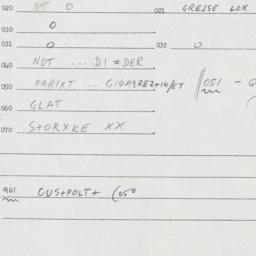 020 0 021 GREJSE LOX
030 0
031 0 032 0
040 NOT ... DI = DER
050 FARIXT .. 051 -
060 GLAT
070 S+ORXKE XX
901 OUS+POLT+ (050